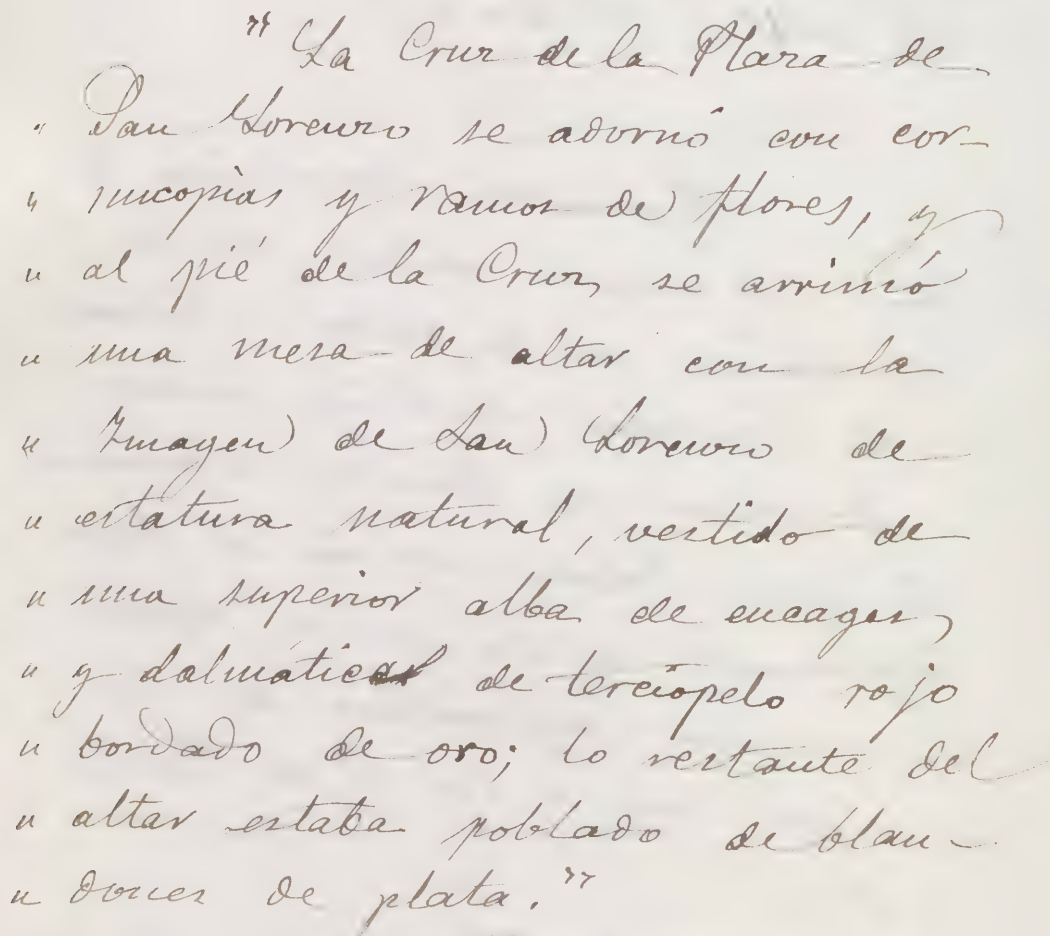 " La Cruz de la Plaza de
" San Lorenzo se adornó con cor-
" nucopias y ramos de flores, y
" al pié de la Cruz, se arrimó
" una mesa de altar con la
" Imagen de San Lorenzo de
" estatura natural, vestido de
" una superior alba de encages,
" y dalmática de terciopelo rojo
" bordado de oro; lo restante del
" altar estaba poblado de blan-
" dones de plata."